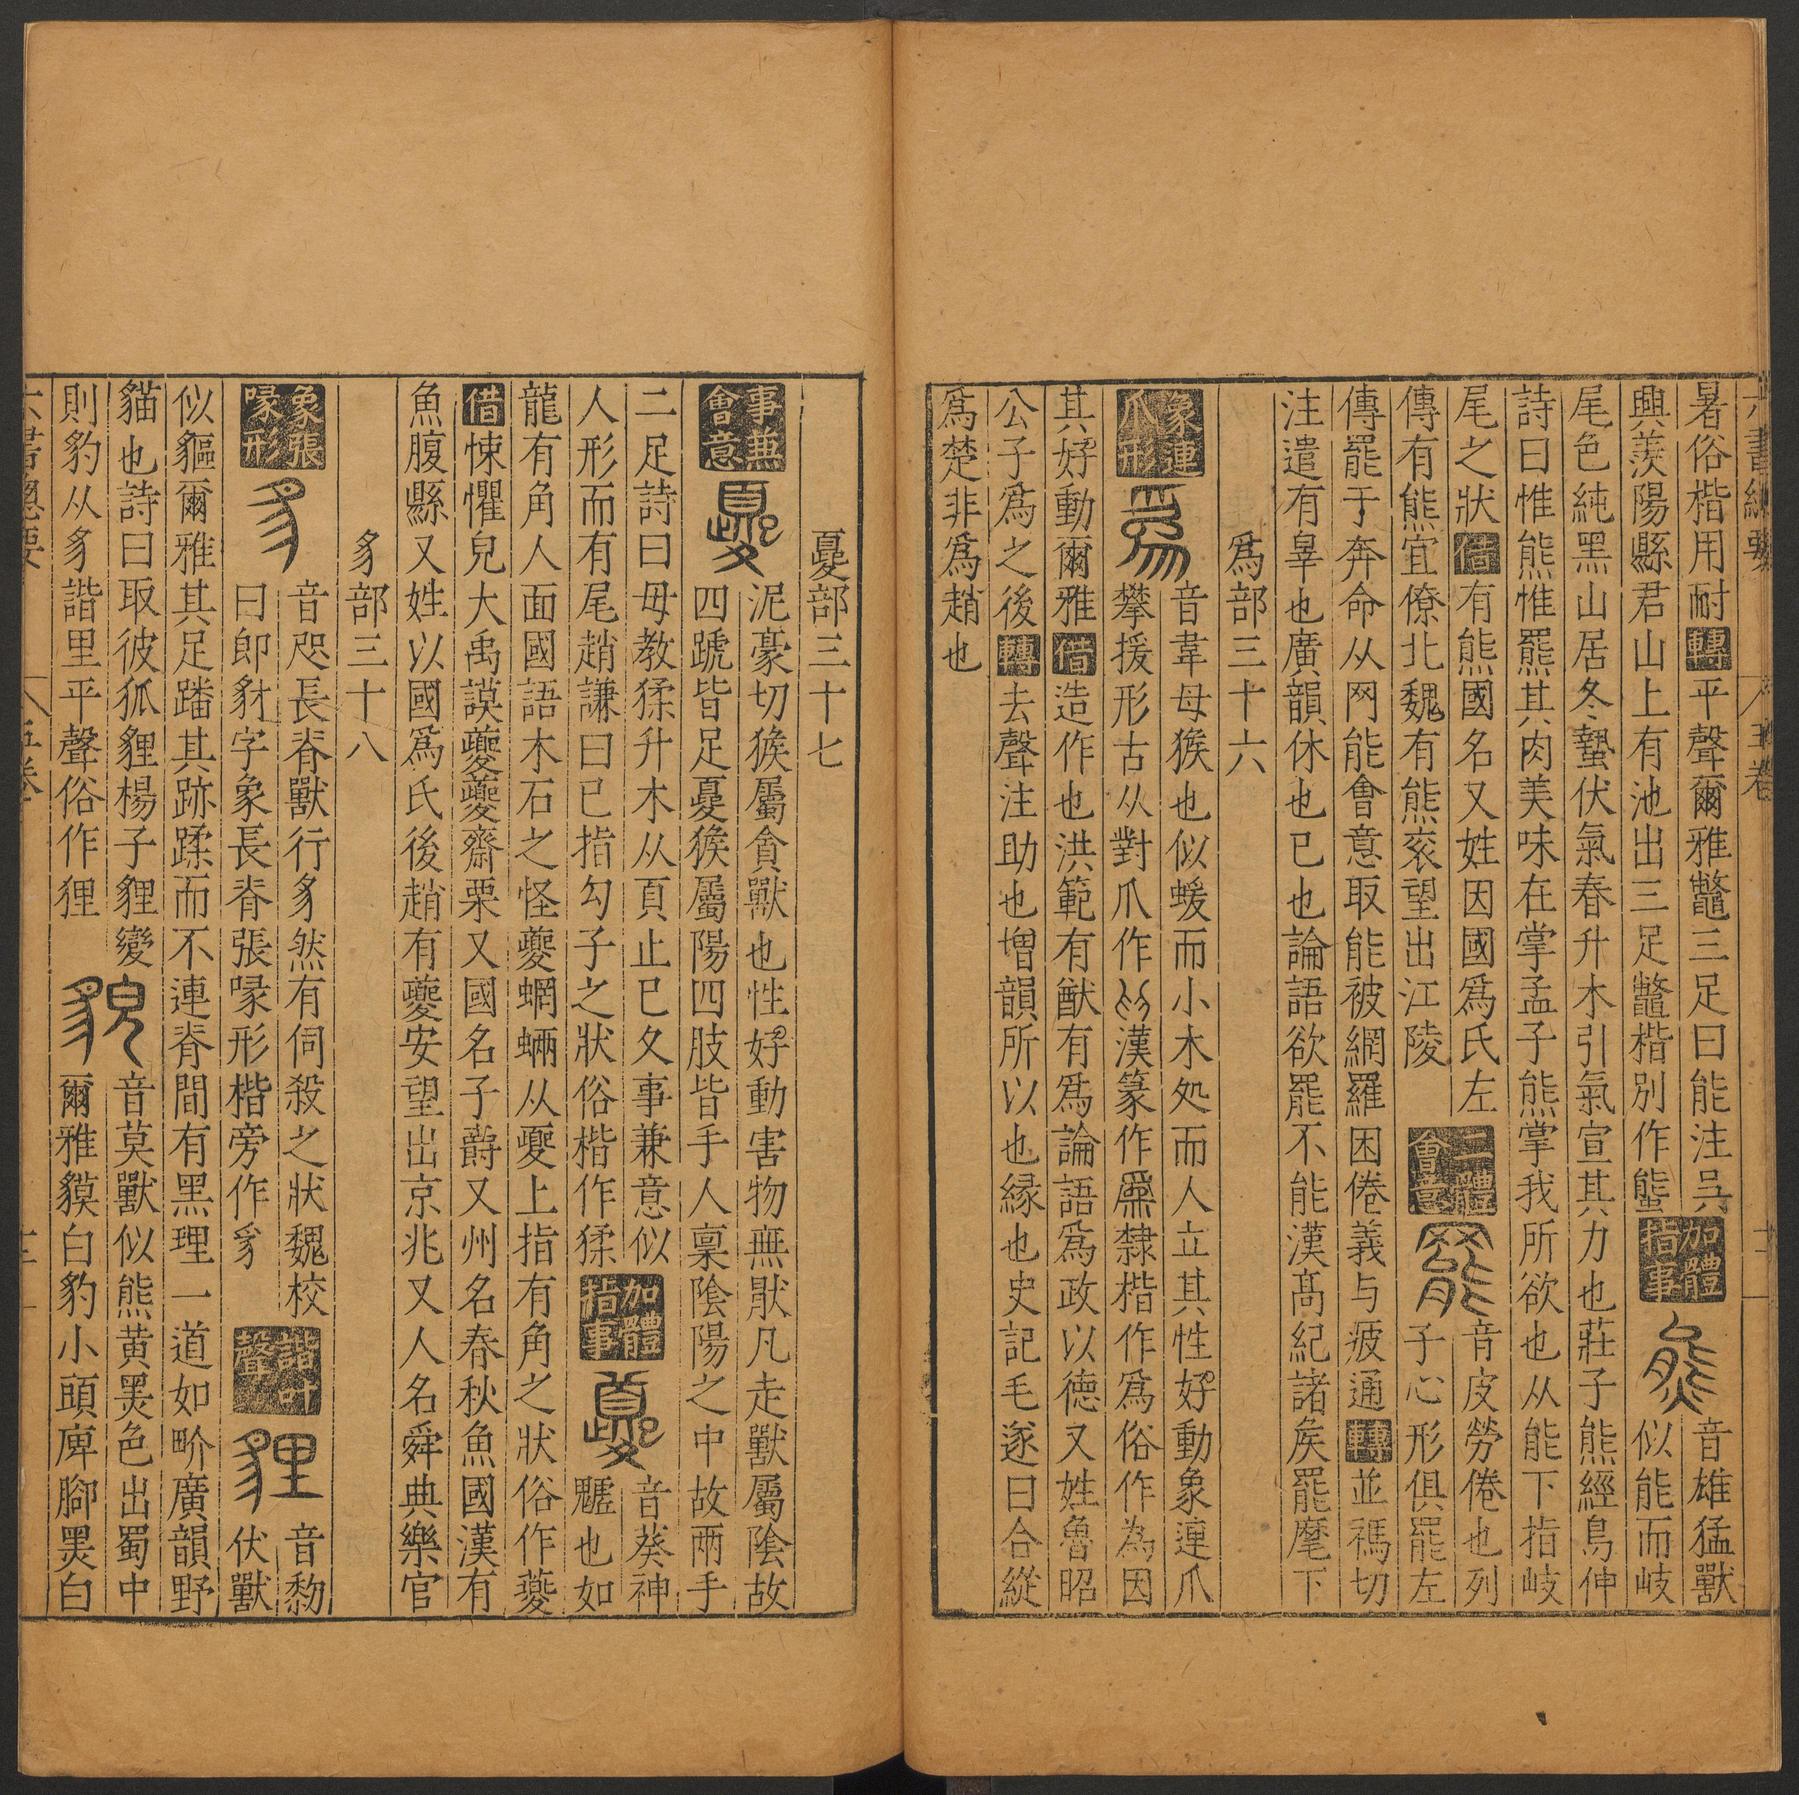 六書總要 五卷
暑俗楷用耐轉平聲爾雅鼈三足曰能注吳
興義陽縣君山上有池出三足鼈楷別作䏻加體指事熊音雄猛獸似能而岐
尾色純黑山居冬蟄伏氣春升木引氣宣其力也莊子熊經鳥伸
詩曰惟熊惟羆其肉美味在掌孟子熊掌我所欲也从能下指岐
尾之狀借有熊國名又姓因國爲氏左
傳有熊宜僚北魏有熊衮望出江陵二體會意罷音皮勞倦也列子心形俱罷左
傳罷于奔命从网能會意取能被網羅困倦義与疲通轉並禡切
注遣有辠也廣韻休也已也論語欲罷不能漢高紀諸矦罷麾下
爲部三十六
象連爪形爲音韋母猴也似蝯而小木処而人立其性好動象連爪
攀援形古从對爪作漢篆作爲隸楷作爲俗作為因
其好動爾雅借造作也洪範有猷有爲論語爲政以德又姓魯昭
公子爲之後轉去聲注助也增韻所以也緣也史記毛遂曰合縱
爲楚非爲趙也
夒部三十七
事兼會意夒泥豪切猴屬貪獸也性好動害物無猒凡走獸屬陰故
四蹏皆足夒猴屬陽四肢皆手人稟陰陽之中故兩手
二足詩曰毋教猱升木从頁止巳夊事兼意似
人形而有尾趙謙曰已指勾子之狀俗楷作猱加體指事夔音葵神魖也如
龍有角人面國語木石之怪夔蝄蜽从夒上指有角之狀俗作䕫
借悚懼皃大禹謨夔夔齋栗又國名子爵又州名春秋魚國漢有
魚腹縣又姓以國爲氏後趙有夔安望出京兆又人名舜典樂官
豸部三十八
象張喙形豸音咫長脊獸行豸然有伺殺之狀魏校
曰卽豺字象長脊張喙形楷旁作豸諧叶聲貍音黎伏獸
似貙爾雅其足蹯其跡蹂而不連脊間有黑理一道如畍廣韻野
貓也詩曰取彼狐貍楊子貍變
則豹从豸諧里平聲俗作狸貌音莫獸似熊黄黑色出蜀中爾雅貘白豹小頭庳腳黑白
六書總要 五卷